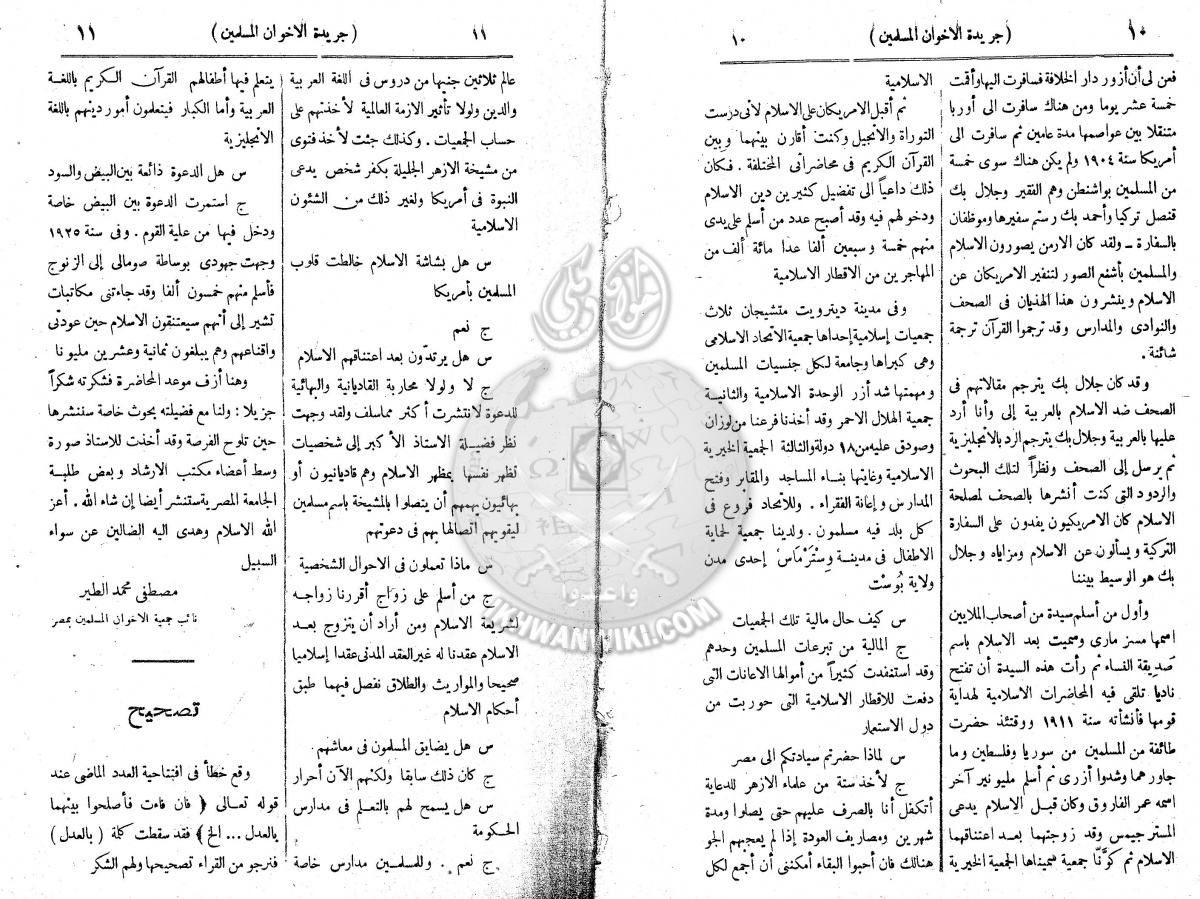 ١٠
( جريدة الاخوان المسلمين )
١٠
فعن لى أن أزور دار الخلافة فسافرت اليها وأقمت
خمسة عشر يوما ومن هناك سافرت الى أوربا
متنقلا بين عواصمها مدة عامين ثم سافرت الى
أمريكا سنة ١٩٠٤ ولم يكن هناك سوى خمسة
من المسلمين بواشنطن وهم الفقير وجلال بك
قنصل تركيا وأحمد بك رستم سفيرها وموظفان
بالسفارة ـ ولقد كان الارمن يصورون الاسلام
والمسلمين بأشفع الصور لتنفير الامريكان عن
الاسلام وينشرون هذا الهذيان فى الصحف
والنوادى والمدارس وقد ترجموا القرآن ترجمة
شائنة .
وقد كان جلال بك يترجم مقالاتهم فى
الصحف ضد الاسلام بالعربية إلى وأنا أرد
عليها بالعربية وجلال بك يترجم الرد بالانجليزية
ثم يرسل إلى الصحف ونظراً لتلك البحوث
والردود التى كنت أنشرها بالصحف لمصلحة
الاسلام كان الامريكيون يفدون على السفارة
التركية ويسألون عن الاسلام ومزاياه وجلال
بك هو الوسيط بيننا
وأول من أسلم سيدة من أصحاب الملايين
اسمها مسز مارى وسميت بعد الاسلام باسم
صديقة النساء ثم رأت هذه السيدة أن تفتح
ناديا تلقى فيه المحاضرات الاسلامية لهداية
قومها فأنشأته سنة ١٩١١ ووقتئذ حضرت
طائفة من المسلمين من سوريا وفلسطين وما
جاورهما وشدوا أزرى ثم أسلم مليونير آخر
اسمه عمر الفاروق وكان قبل الاسلام يدعى
المستر جيمس وقد زوجتهما بعد اعتناقهما
الاسلام ثم كوَّنَّا جمعية سميناها الجمعية الخيرية
الاسلامية
ثم أقبل الامريكان على الاسلام لأنى درست
التوراة والانجيل وكنت أقارن بينهما وبين
القرآن الكريم فى محاضراتى المختلفة . فكان
ذلك داعياً الى تفضيل كثيرين دين الاسلام
ودخولهم فيه وقد أصبح عدد من أسلم على يدى
منهم خمسة وسبعين ألفا عدا مائة ألف من
المهاجرين من الاقطار الاسلامية
وفى مدينة ديترويت متشيجان ثلاث
جمعيات إسلامية إحداها جمعية الاتحاد الاسلامى
وهى كبراها وجامعة لكل جنسيات المسلمين
ومهمتها شد أزر الوحدة الاسلامية والثانية
جمعية الهلال الاحمر وقد أخذنا فرعنا من لوزان
وصودق عليه من ١٨ دولة والثالثة الجمعية الخيرية
الاسلامية وغايتها بناء المساجد والمقابر وفتح
المدارس وإعانة الفقراء . وللاتحاد فروع فى
كل بلد فيه مسلمون . ولدينا جمعية لحماية
الاطفال فى مدينة وِستَرْماَسْ إحدى مدن
ولاية بُوسْت
س كيف حال مالية تلك الجمعيات
ج المالية من تبرعات المسلمين وحدهم
وقد استنفدت كثيراً من أموالها الاعانات التى
دفعت للاقطار الاسلامية التى حوربت من
دول الاستعمار
س لماذا حضرتم سيادتكم الى مصر
ج لأخذ ستة من علماء الازهر للدعاية
أتكفل أنا بالصرف عليهم حتى يصلوا ومدة
شهرين ومصاريف العودة إذا لم يعجبهم الجو
هنالك فان أحبوا البقاء أمكننى أن أجمع لكل
١١
( جريدة الاخوان المسلمين )
١١
عالم ثلاثين جنيها من دروس فى اللغة العربية
والدين ولولا تأثير الازمة العالمية لأخذتهم على
حساب الجمعيات . وكذلك جئت لأخذ فتوى
من مشيخة الازهر الجليلة بكفر شخص يدعى
النبوة فى أمريكا ولغير ذلك من الشئون
الاسلامية
س هل بشاشة الاسلام خالطت قلوب
المسلمين بأمريكا
ج نعم
س هل يرتدّون بعد اعتناقهم الاسلام
ج لا ولولا محاربة القاديانية والبهائية
للدعوة لانتشرت أكثر مماسلف ولقد وجهت
نظر فضيلة الاستاذ الأكبر إلى شخصيات
تظهر نفسها بمظهر الاسلام وهم قاديانيون أو
بهائيون يهمهم أن يتصلوا بالمشيخة باسم مسلمين
ليقويهم اتصالها بهم فى دعوتهم
س ماذا تعملون فى الاحوال الشخصية
ج من أسلم على زواج أقررنا زواجه
لشريعة الاسلام ومن أراد أن يتزوج بعد
الاسلام عقدنا له غير العقد المدنى عقدا إسلاميا
صحيحا والمواريث والطلاق نفصل فيهما طبق
أحكام الاسلام
س هل يضايق المسلمون فى معاشهم
ج كان ذلك سابقا ولكنهم الآن أحرار
س هل يسمح لهم بالتعلم فى مدارس
الحكومة
ج نعم . وللمسلمين مدارس خاصة
يتعلم فيها أطفالهم القرآن الكريم باللغة
العربية وأما الكبار فيتعلمون أمور دينهم باللغة
الانجليزية
س هل الدعوة ذائعة بين البيض والسود
ج استمرت الدعوة بين البيض خاصة
ودخل فيها من علية القوم . وفى سنة ١٩٢٥
وجهت جهودى بوساطة صومالى إلى الزنوج
فأسلم منهم خمسون ألفا وقد جاءتنى مكاتبات
تشير إلى أنهم سيعتنقون الاسلام حين عودتى
واقناعهم وهم يبلغون ثمانية وعشرين مليونا
وهنا أزف موعد المحاضرة فشكرته شكراً
جزيلا : ولنا مع فضيلته بحوث خاصة سننشرها
حين تلوح الفرصة وقد أخذت للاستاذ صورة
وسط أعضاء مكتب الارشاد وبعض طلبة
الجامعة المصرية ستنشر أيضا إن شاء الله . أعز
الله الاسلام وهدى اليه الضالين عن سواء
السبيل
مصطفى محمد الطير
نائب جمعية الاخوان المسلمين بمصر
تصحيح
وقع خطأ فى افتتاحية العدد الماضى عند
قوله تعالى ﴿ فان فاءت فأصلحوا بينهما
بالعدل ... الخ ﴾ فقد سقطت كلمة ( بالعدل )
فنرجو من القراء تصحيحها ولهم الشكر
واعدوا
IKHWANWIKI.COM